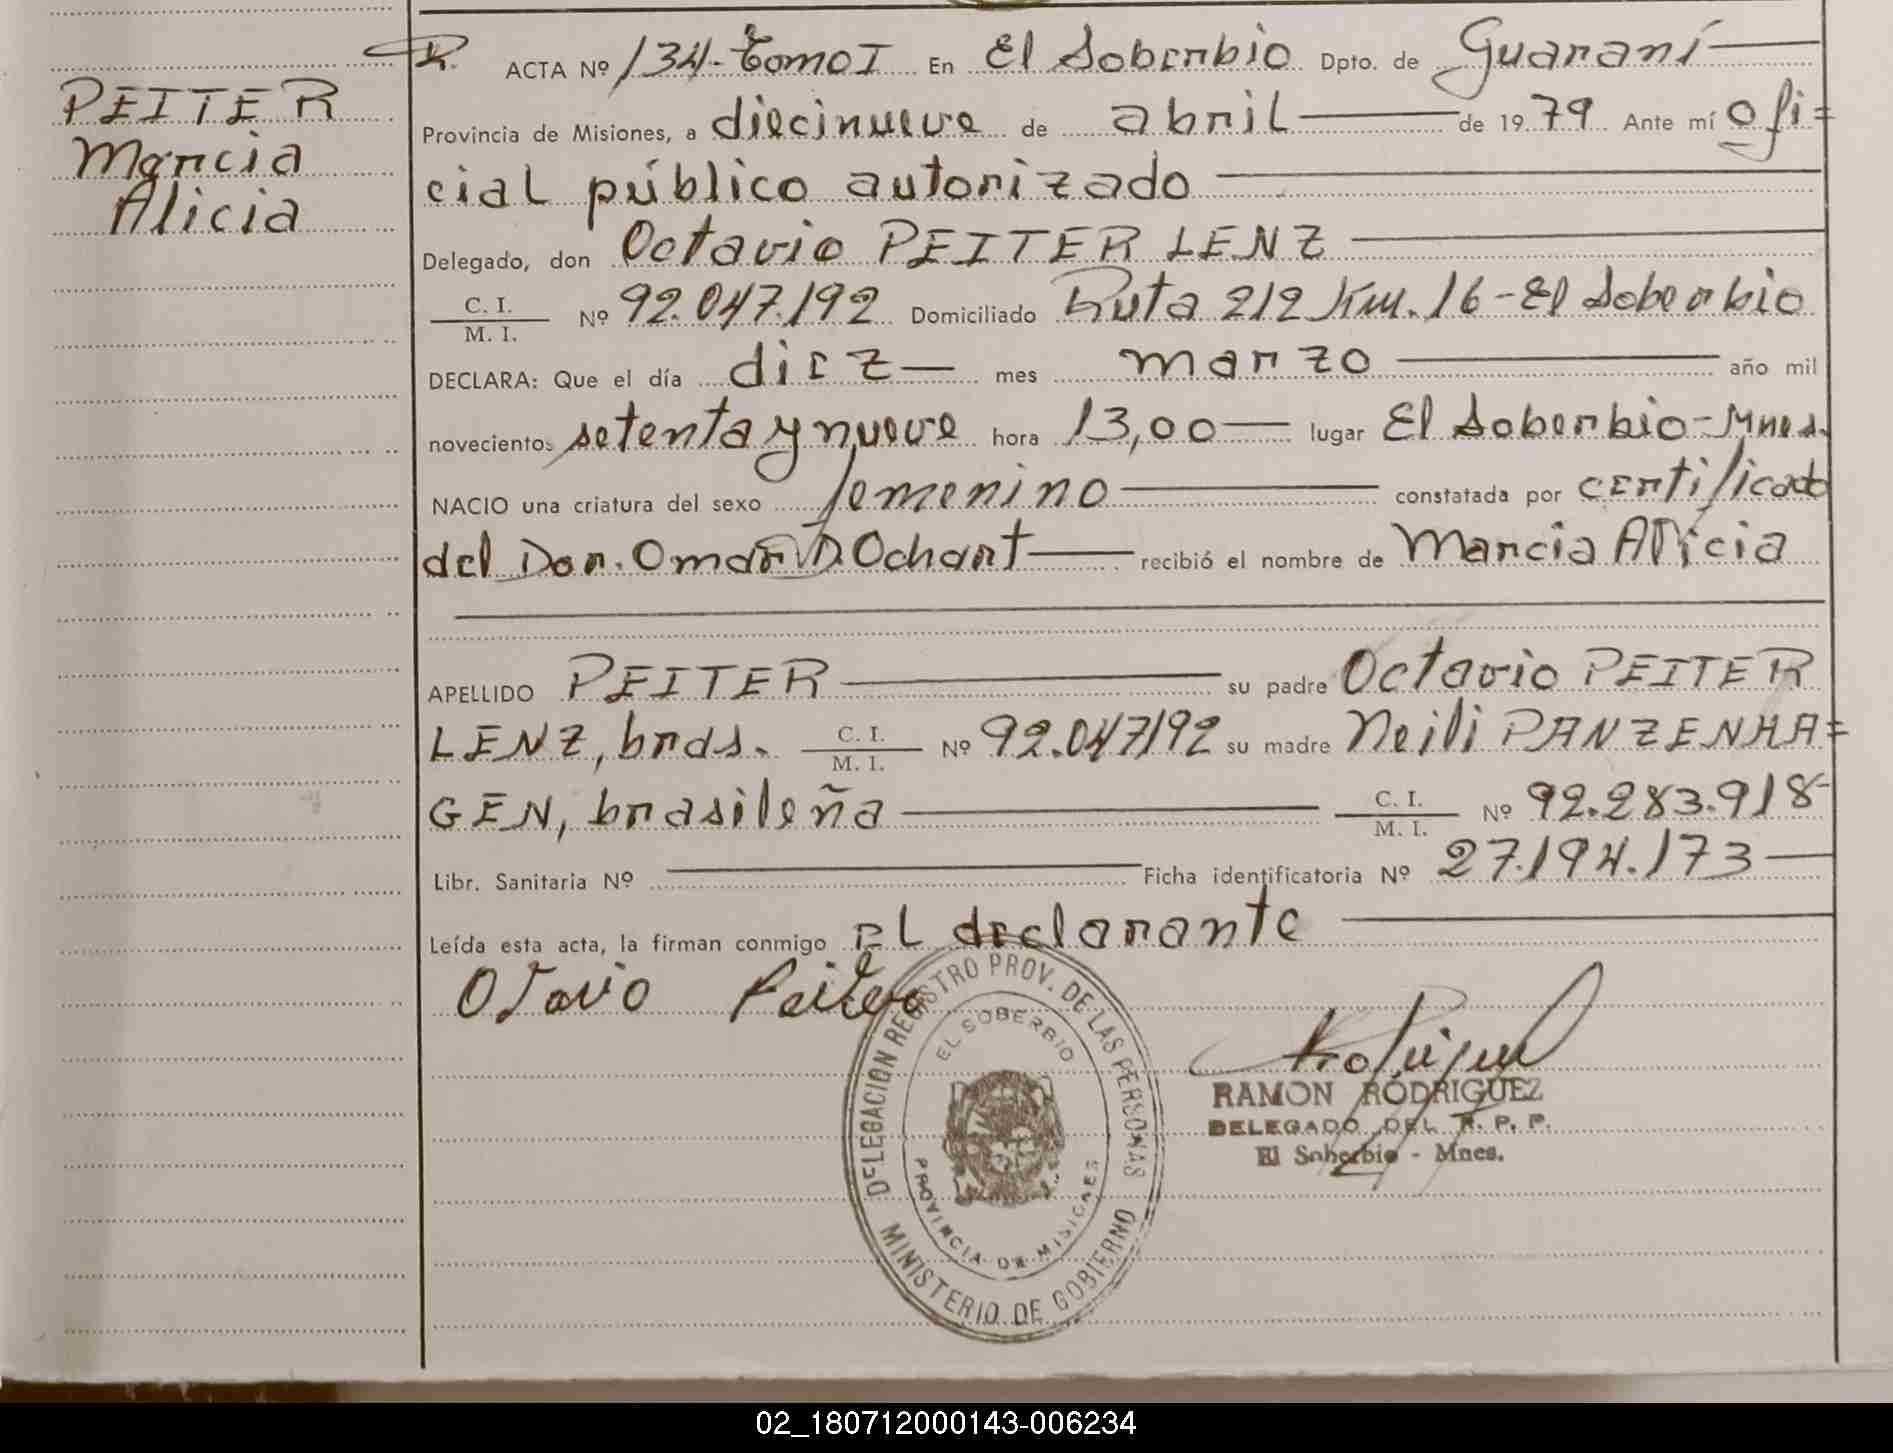 PEITER
Marcia
Alicia
R. ACTA Nº 134-Tomo I En El Soberbio Dpto. de Guaraní
Provincia de Misiones, a diecinueve de abril de 1979 Ante mí Ofi=
cial público autorizado
Delegado, don Octavio PEITER LENZ
C. I.
M. I. Nº 92.047.192 Domiciliado Ruta 212 Km. 16-El Soberbio
DECLARA: Que el día diez mes marzo año mil
novecientos setenta y nueve hora 13,00 lugar El Soberbio-Mnes.
NACIO una criatura del sexo femenino constatada por certificado
del Dor. Omar D. Ochart recibió el nombre de Marcia Alicia
APELLIDO PEITER su padre Octavio PEITER
LENZ, brds. C. I. M. I. Nº 92.047192 su madre Neili PANZENHA=
GEN, brasileña C. I. M. I. Nº 92.283.918-
Libr. Sanitaria Nº Ficha identificatoria Nº 27.194.173
Leída esta acta, la firman conmigo El declarante
Otavio Peiter
DELEGACION REGISTRO PROV. DE LAS PERSONAS
EL SOBERBIO
PROVINCIA DE MISIONES
MINISTERIO DE GOBIERNO
RAMON RODRIGUEZ
DELEGADO DEL R. P. P.
El Soberbio - Mnes.
02_180712000143-006234